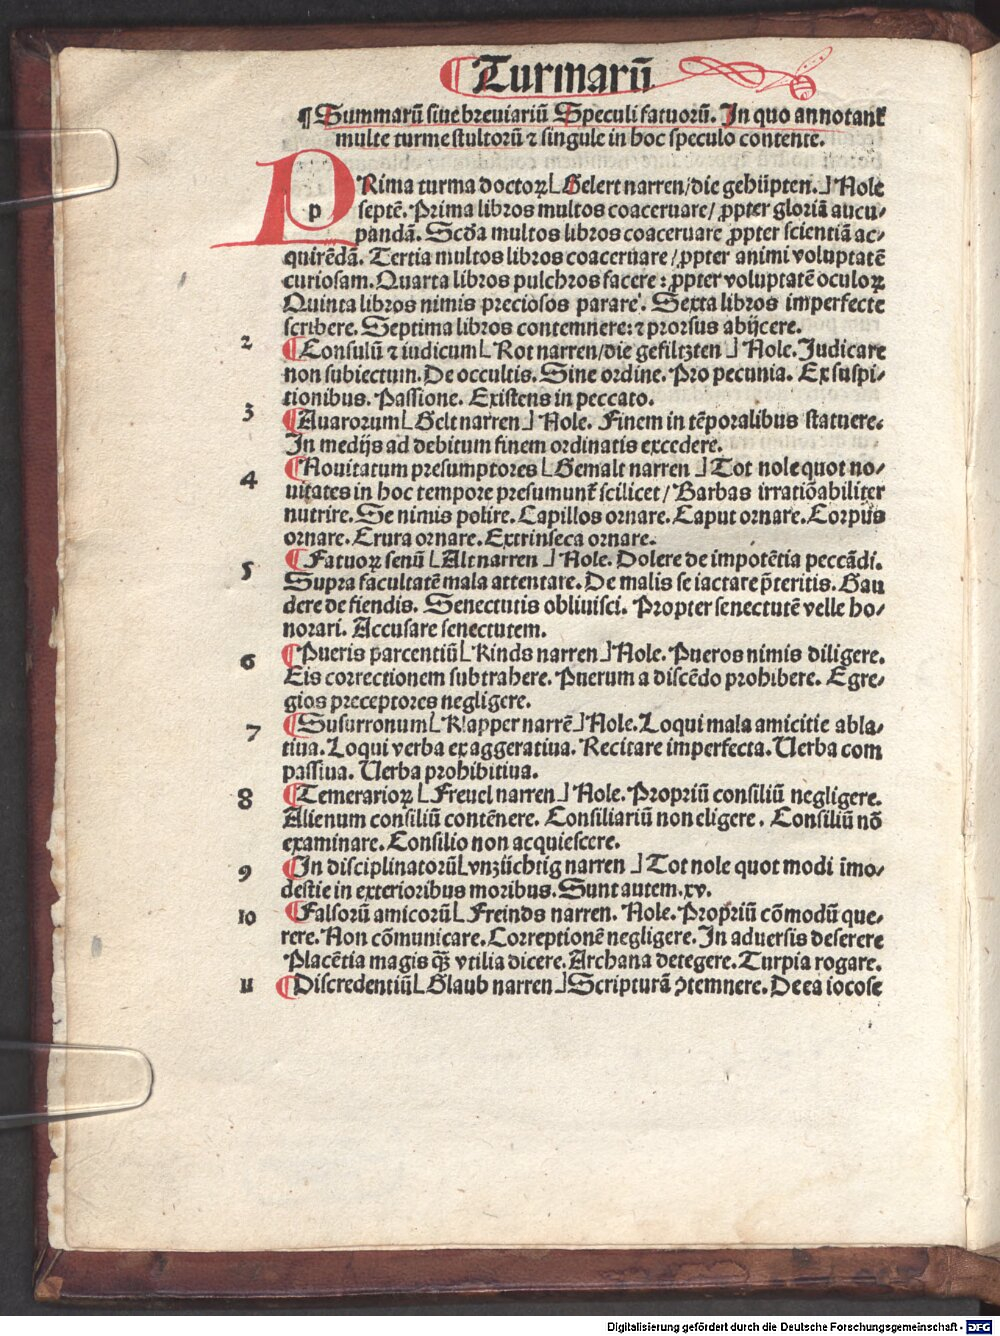 Turmarū
¶ Summarū siue breuiariū Speculi fatuorū. In quo annotant᷑
multe turme stultorū ⁊ singule in hoc speculo contente.
PRima turma doctoꝝ ⌊ Gelert narren/die gehüpten. ⌋ Nole
p septē. Prima libros multos coaceruare/ ꝓpter gloriā aucu⸗
pandā. Scd̄a multos libros coaceruare ꝓpter scientiā ac⸗
quirēdā. Tertia multos libros coaceruare/ ꝓpter animi voluptatē
curiosam. Quarta libros pulchros facere: ꝓpter voluptatē oculoꝝ
Quinta libros nimis preciosos parare. Sexta libros imperfecte
scribere. Septima libros contemnere: ⁊ prorsus abijcere.
2 ¶ Consulū ⁊ iudicum ⌊ Rot narren/die gefiltzten ⌋ Nole. Judicare
non subiectum. De occultis. Sine ordine. Pro pecunia. Ex suspi⸗
tionibus. Passione. Existens in peccato.
3 ¶ Auarorum ⌊ Gelt narren ⌋ Nole. Finem in tēporalibus statuere.
In medijs ad debitum finem ordinatis excedere.
4 ¶ Nouitatum presumptores ⌊ Gemalt narren ⌋ Tot nole quot no⸗
uitates in hoc tempore presumunt᷑ scilicet/ Barbas irratiōabiliter
nutrire. Se nimis polire. Capillos ornare. Caput ornare. Corpus
ornare. Crura ornare. Extrinseca ornare.
5 ¶ Fatuoꝝ senū ⌊ Alt narren ⌋ Nole. Dolere de impotētia peccādi.
Supra facultatē mala attentare. De malis se iactare p̄teritis. Gau
dere de fiendis. Senectutis obliuisci. Propter senectutē velle ho⸗
norari. Accusare senectutem.
6 ¶ Pueris parcentiū ⌊ Kinds narren ⌋ Nole. Pueros nimis diligere.
Eis correctionem subtrahere. Puerum a discēdo prohibere. Egre⸗
gios preceptores negligere.
7 ¶ Susurronum ⌊ Klapper narrē ⌋ Nole. Loqui mala amicitie abla⸗
tiua. Loqui verba exaggeratiua. Recitare imperfecta. Verba com
passiua. Verba prohibitiua.
8 ¶ Temerarioꝝ ⌊ Freuel narren ⌋ Nole. Propriū consiliū negligere.
Alienum consiliū contēnere. Consiliariū non eligere. Consiliū nō
examinare. Consilio non acquiescere.
9 ¶ In disciplinatorū ⌊ vnzüchtig narren ⌋ Tot nole quot modi īmo⸗
destie in exterioribus moribus. Sunt autem .xv.
10 ¶ Falsorū amicorū ⌊ Freinds narren. Nole. Propriū cōmodū que⸗
rere. Non cōmunicare. Correptionē negligere. In aduersis deserere
Placētia magis qȝ̄ vtilia dicere. Archana detegere. Turpia rogare.
11 ¶ Discredentiū ⌊ Glaub narren ⌋ Scripturā ꝯtemnere. De ea iocose
Digitalisierung gefördert durch die Deutsche Forschungsgemeinschaft - DFG